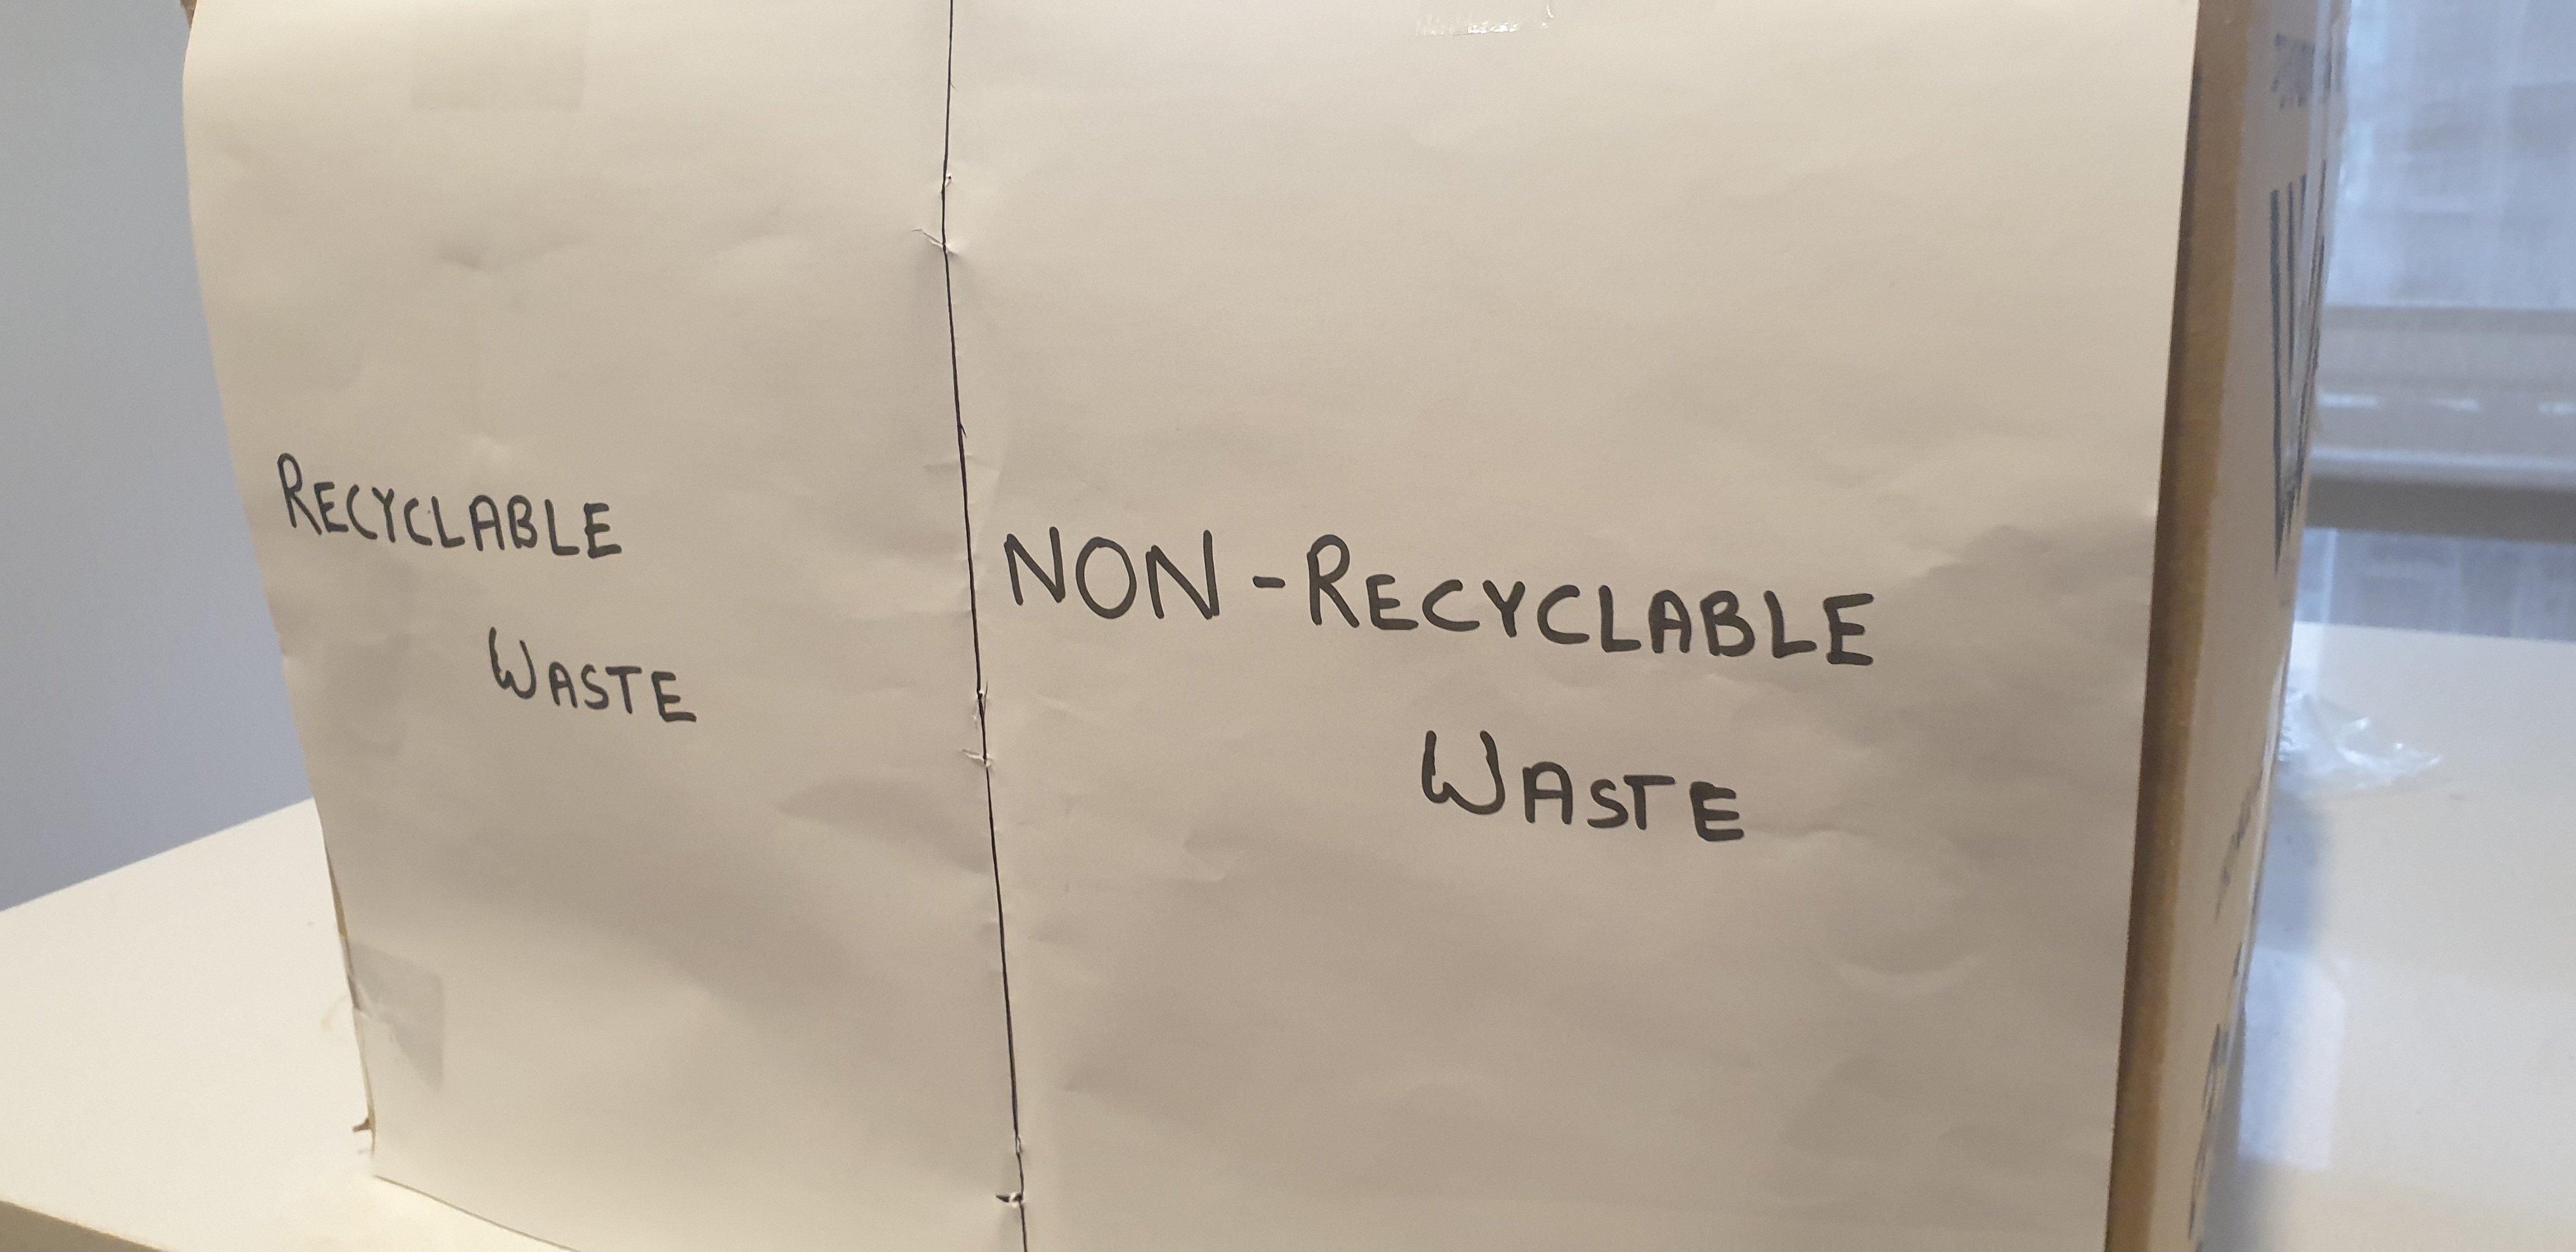 RECYCLABLE
WASTE
NON-RECYCLABLE
WASTE